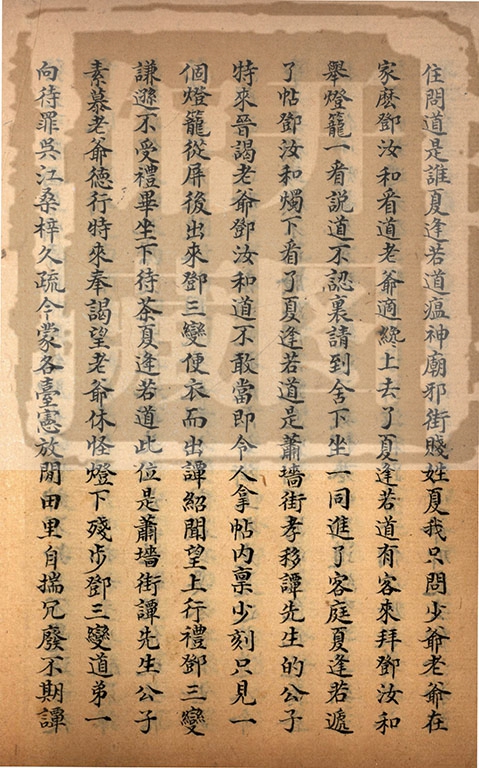 住問道是誰夏逢若道瘟神廟邪街賤姓夏我只問少爺老爺在
家麽鄧汝和看道老爺適纔上去了夏逢若道有客來拜鄧汝和
舉燈籠一看説道不認裏請到舍下坐一同進了客庭夏逢若遞
了帖鄧汝和燭下看了夏逢若道是蕭墻街孝移譚先生的公子
特來晉謁老爺鄧汝和道不敢當即令人拿帖内稟少刻只見一
個燈籠從屏後出來鄧三變便衣而出譚紹聞望上行禮鄧三變
謙遜不受禮畢坐下待茶夏逢若道此位是蕭墻街譚先生公子
素慕老爺德行特來奉謁望老爺休怪燈下殘步鄧三變道弟一
向待罪吳江桑梓久疏今蒙各臺憲放閒田里自揣冗廢不期譚